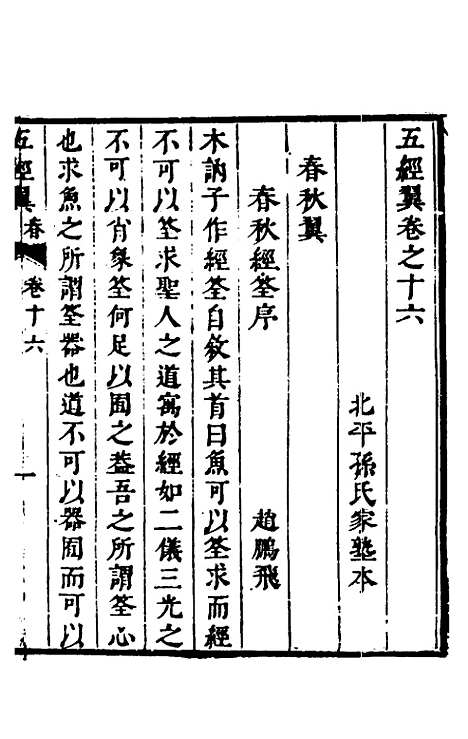 五經翼卷之十六
北平孫氏家塾本
春秋翼
春秋經筌序　趙鵬飛
木訥子作經筌自敘其首曰魚可以筌求而經
不可以筌求聖人之道寓於經如二儀三光之
不可以肖象筌何足以囿之蓋吾之所謂筌心
也求魚之所謂筌器也道不可以器囿而可以
五經翼 春 卷十六 一